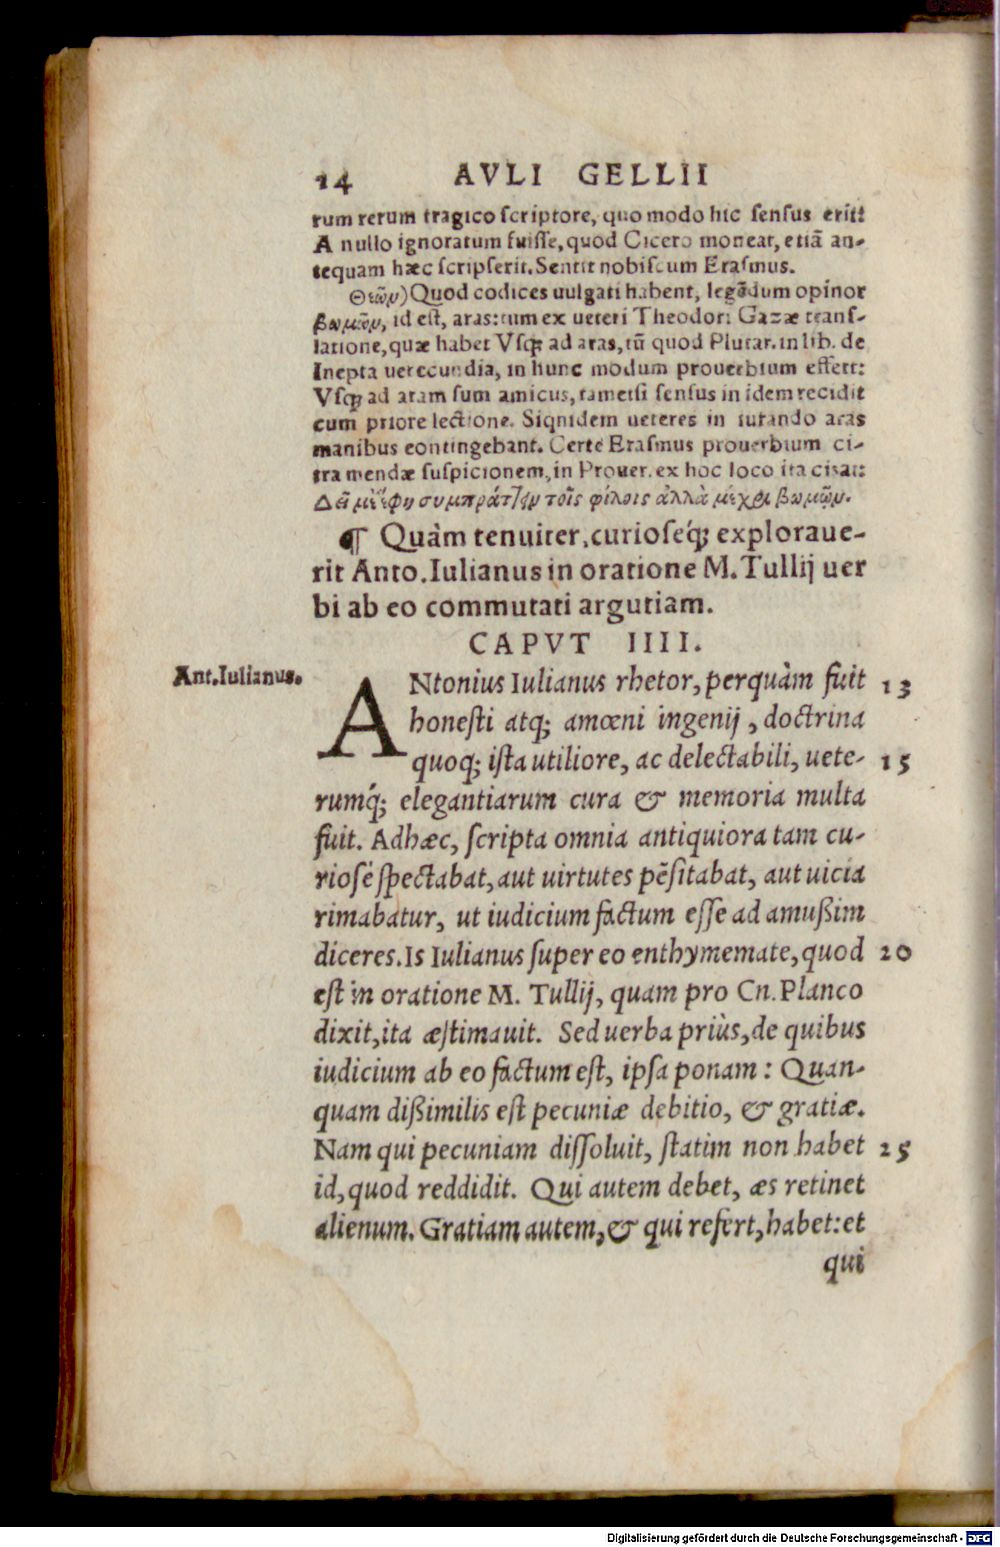 14 AVLI GELLII
rum rerum tragico ſcriptore, quo modo hic ſenſus erit?
A nullo ignoratum fuiſſe, quod Cicero moneat, etiã an-
tequam hæc ſcripſerit. Sentit nobiſcum Eraſmus.
Θεῶν) Quod codices uulgati habent, legẽdum opinor
βωμῶν, id eſt, aras: tum ex ueteri Theodori Gazæ tranſ-
latione, quæ habet Vſqꝫ ad aras, tũ quod Plutar. in lib. de
Inepta uerecundia, in hunc modum prouerbium effert:
Vſqꝫ ad aram ſum amicus, tametſi ſenſus in idem recidit
cum priore lectione. Siquidem ueteres in iurando aras
manibus contingebant. Certè Eraſmus prouerbium ci-
tra mendæ ſuspicionem, in Prouer. ex hoc loco ita citat:
Δεῖ συμπράτ]ειν τοῖς φίλοις ἀλλὰ μέχρι βωμῶν.
¶ Quàm tenuiter, curioſeq́ꝫ exploraue-
rit Anto. Iulianus in oratione M. Tullij uer
bi ab eo commutati argutiam.
CAPVT IIII.
Ant. Iulianus.
ANtonius Iulianus rhetor, perquàm fuit 13
honeſti atqꝫ amœni ingenij, doctrina
quoqꝫ iſta utiliore, ac delectabili, uete- 15
rumq́ꝫ elegantiarum cura & memoria multa
fuit. Adhæc, ſcripta omnia antiquiora tam cu-
rioſè ſpectabat, aut uirtutes pẽſitabat, aut uicia
rimabatur, ut iudicium factum eſſe ad amußim
diceres. Is Iulianus ſuper eo enthymemate, quod 20
eſt in oratione M. Tullij, quam pro Cn. Planco
dixit, ita æſtimauit. Sed uerba priùs, de quibus
iudicium ab eo factum eſt, ipſa ponam: Quan-
quam dißimilis eſt pecuniæ debitio, & gratiæ.
Nam qui pecuniam diſſoluit, ſtatim non habet 25
id, quod reddidit. Qui autem debet, æs retinet
alienum. Gratiam autem, & qui refert, habet: et
qui
Digitalisierung gefördert durch die Deutsche Forschungsgemeinschaft - DFG